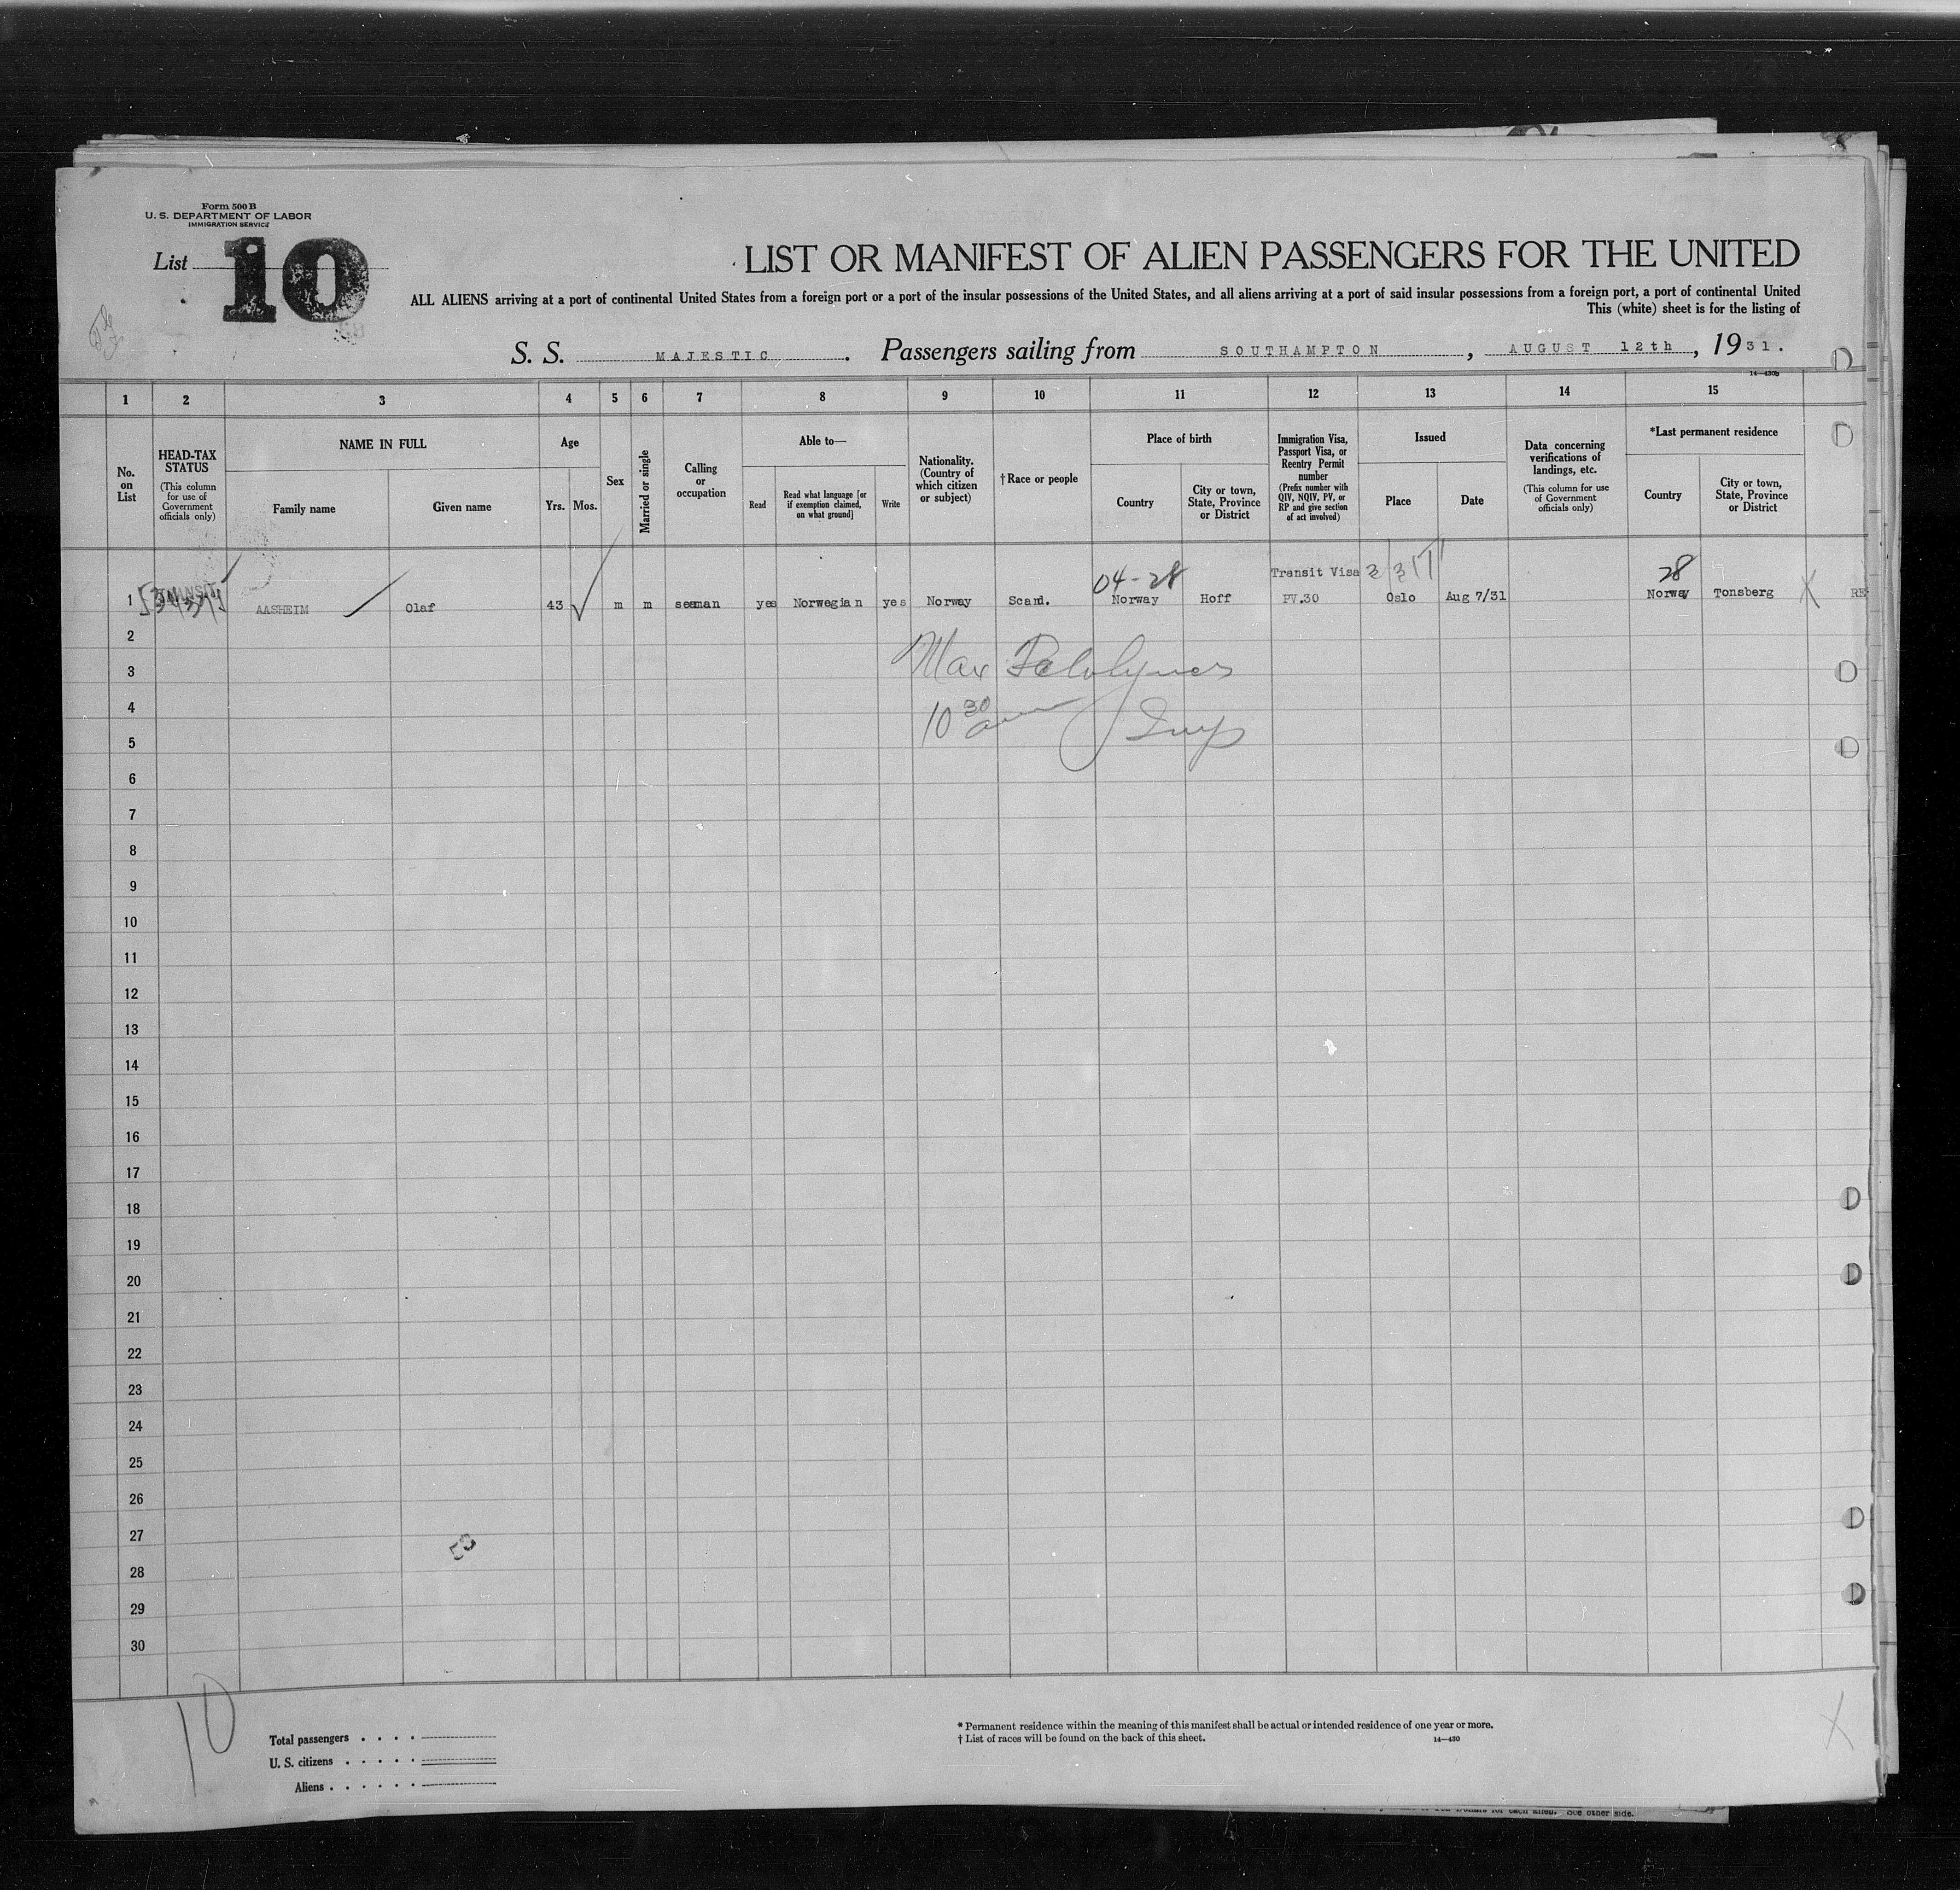 Form 500 B
U. S. DEPARTMENT OF LABOR
IMMIGRATION SERVICE
List 10
LIST OR MANIFEST OF ALIEN PASSENGERS FOR THE UNITED
ALL ALIENS arriving at a port of continental United States from a foreign port or a port of the insular possessions of the United States, and all aliens arriving at a port of said insular possessions from a foreign port, a port of continental United
This (white) sheet is for the listing of
S. S. MAJESTIC. Passengers sailing from SOUTHAMPTON, AUGUST 12th, 1931.
14—430B
1 2 3 4 5 6 7 8 9 10 11 12 13 14 15
No. on List
HEAD-TAX STATUS (This column for use of Government officials only)
NAME IN FULL
Family name
Given name
Age
Yrs. Mos.
Sex
Married or single
Calling or occupation
Able to—
Read
Read what language [or if exemption claimed, on what ground]
Write
Nationality. (Country of which citizen or subject)
†Race or people
Place of birth
Country
City or town, State, Province or District
Immigration Visa, Passport Visa, or Reentry Permit number (Prefix number with QIV, NQIV, PV, or RP and give section of act involved)
Issued
Place
Date
Data concerning verifications of landings, etc. (This column for use of Government officials only)
*Last permanent residence
Country
City or town, State, Province or District
04-28 Transit Visa 28
1 TRANSIT AASHEIM Olaf 43 m m seaman yes Norwegian yes Norway Scand. Norway Hoff PV.30 Oslo Aug 7/31 Norway Tonsberg X RE
2
3 Max
4 10 30
5 Insp
6
7
8
9
10
11
12
13
14
15
16
17
18
19
20
21
22
23
24
25
26
27
28
29
30
10
Total passengers . . . .
U. S. citizens . . . . .
Aliens . . . . . .
* Permanent residence within the meaning of this manifest shall be actual or intended residence of one year or more.
† List of races will be found on the back of this sheet.
14—430
X
See other side.